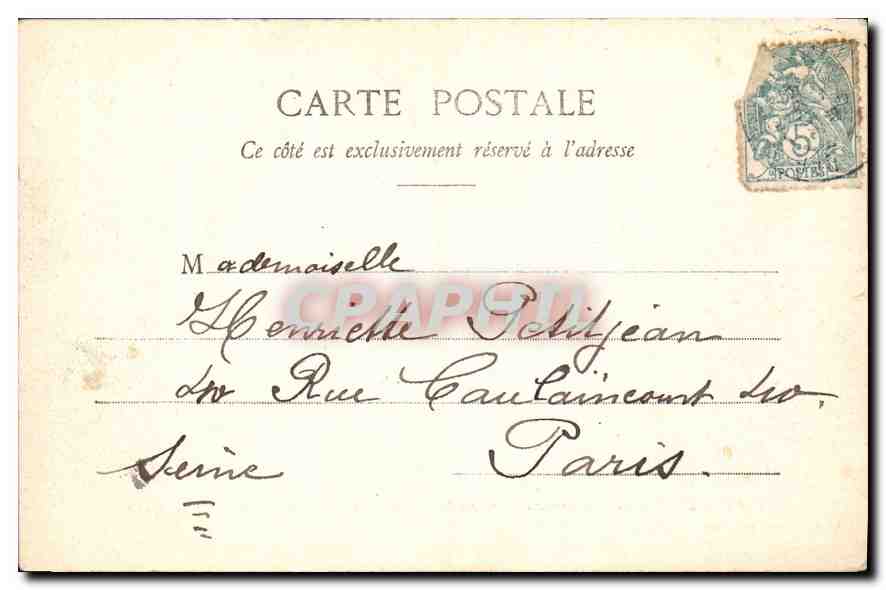 CARTE POSTALE
Ce côté est exclusivement réservé à l'adresse
5c
POSTES
Mademoiselle
CPAPHIL
Henriette Petitjean
40 Rue Caulaincourt 40.
Seine Paris.